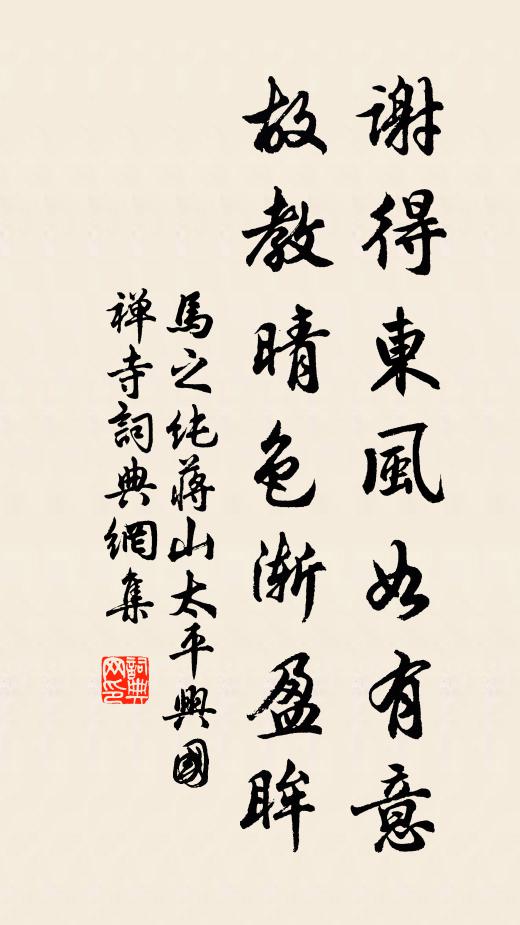 謝得東風如有意
故教晴色漸盈眸
馬之純蔣山太平興國
禅寺詞典網集
詞典网印